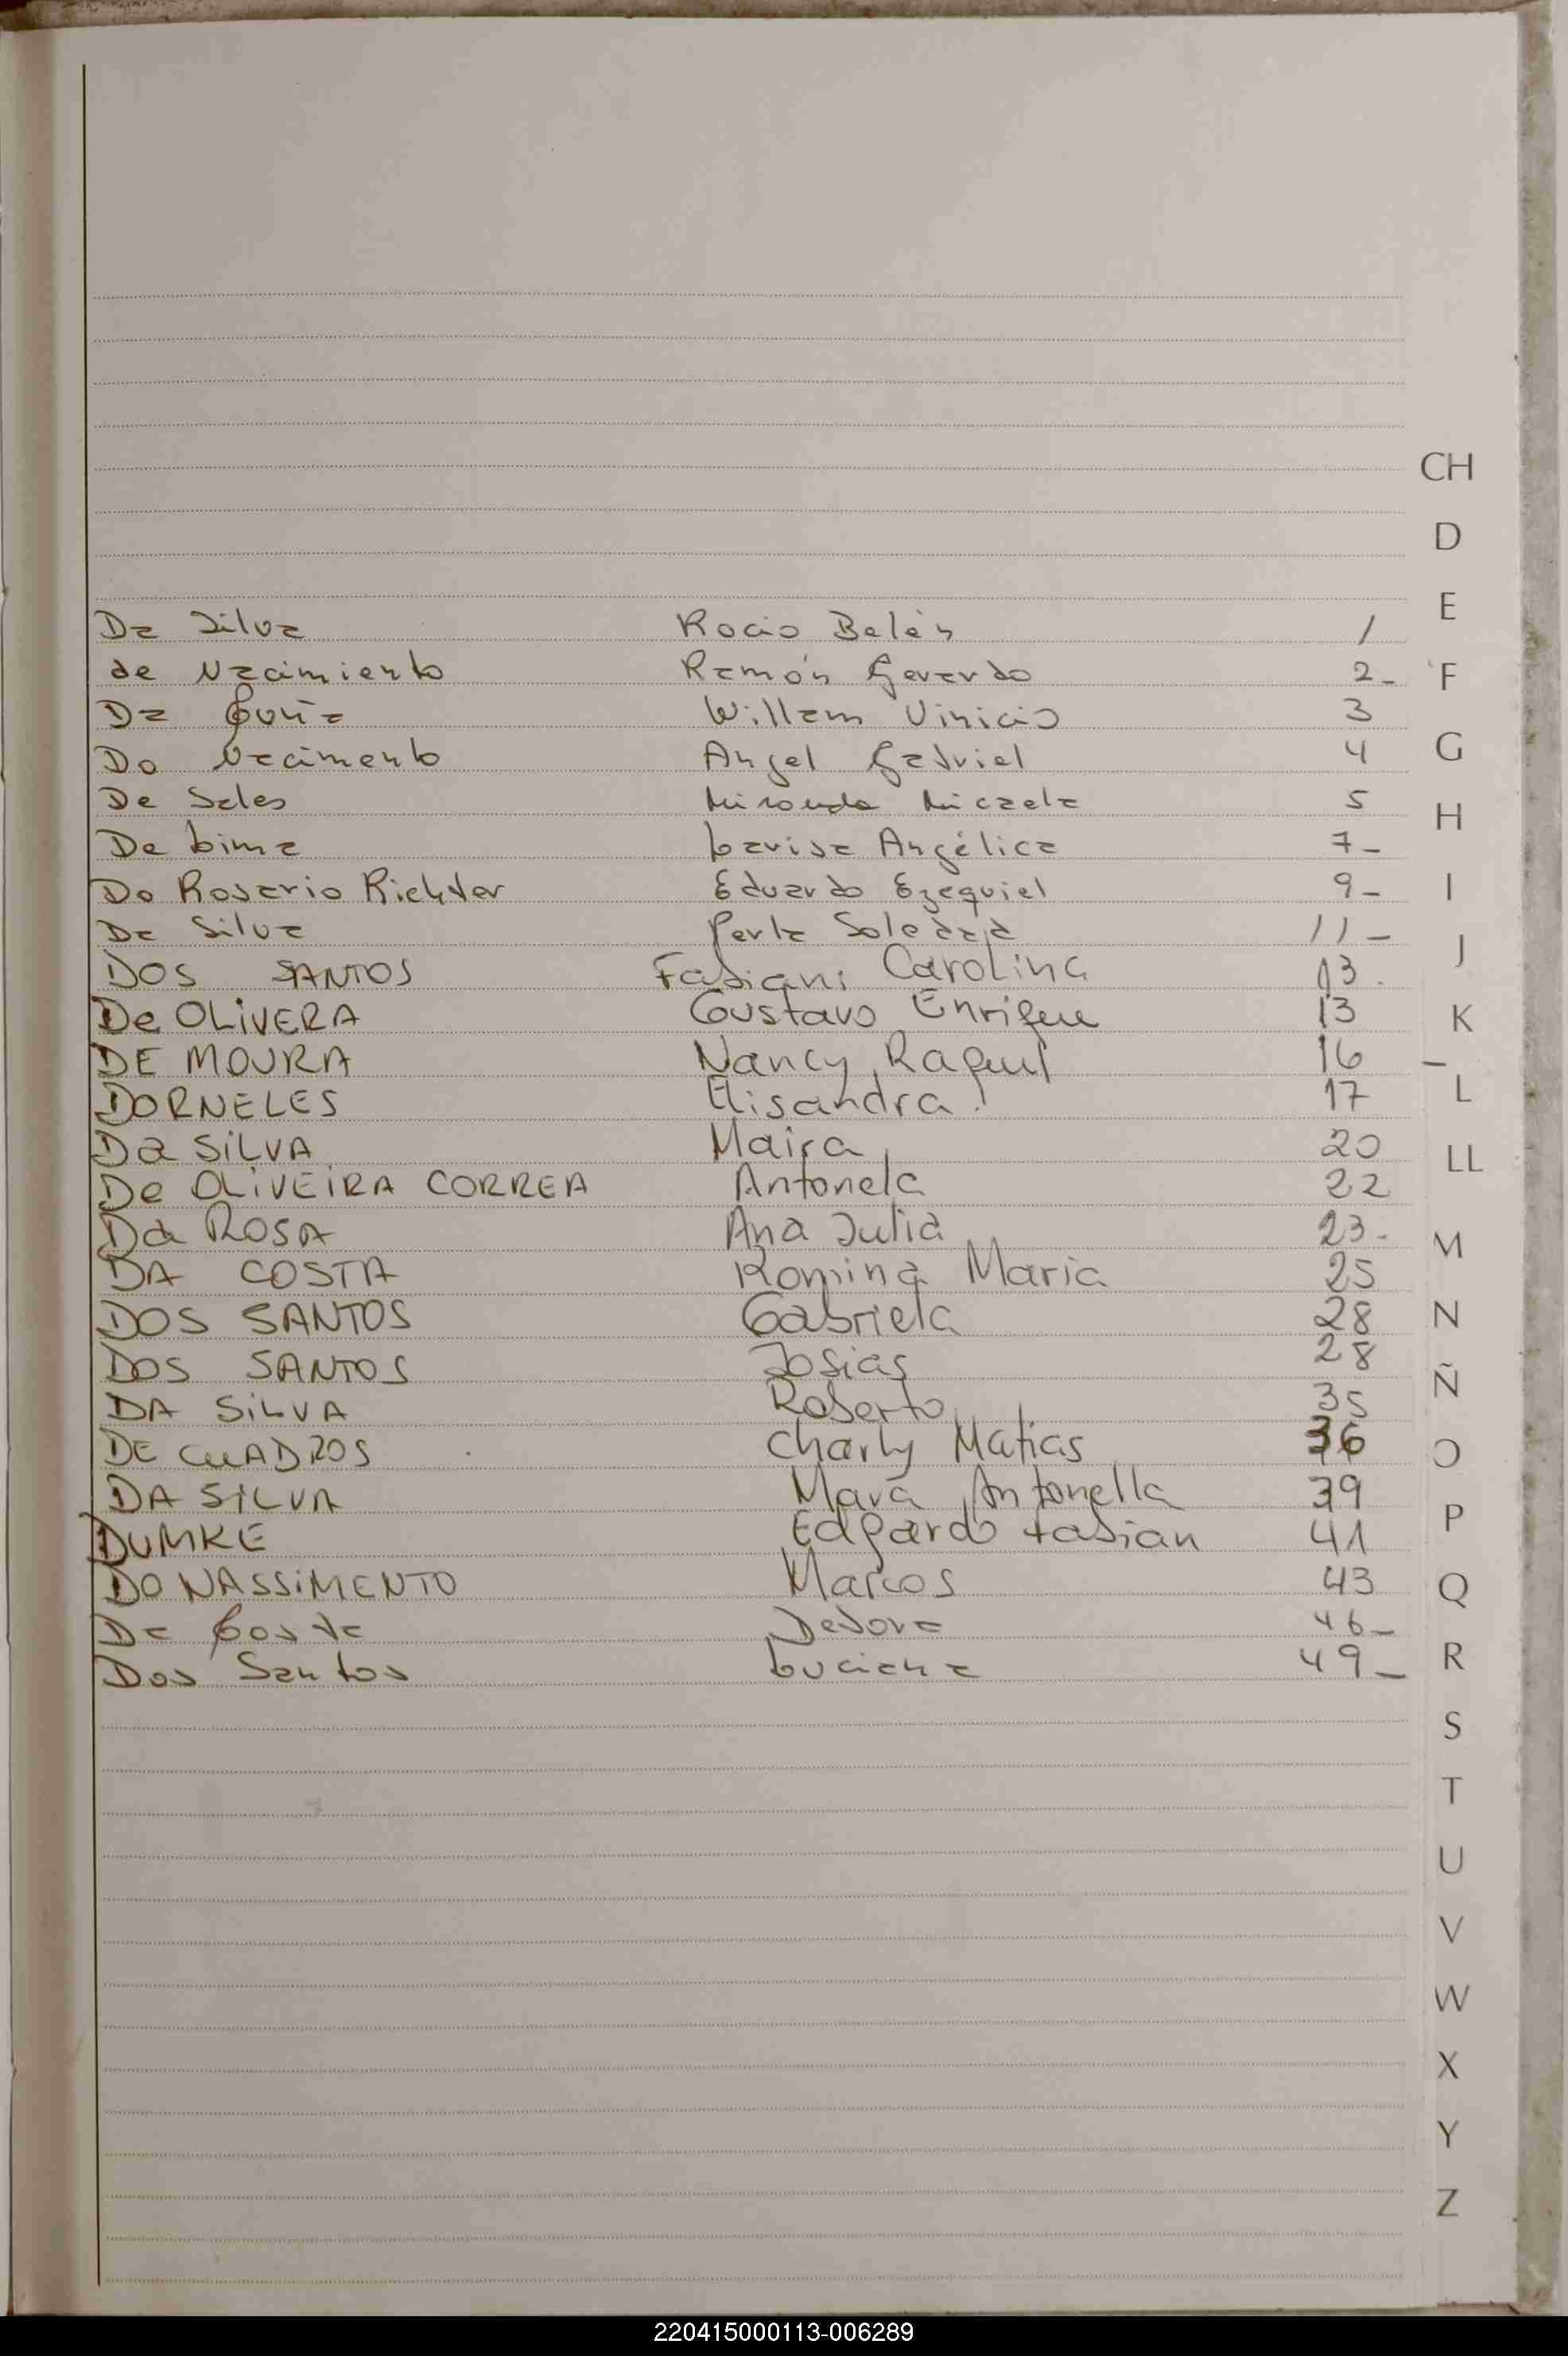 Da Silva Rocio Belén 1
de Nacimiento Ramón Gerardo 2-
Da Willam Vinicio 3
Do Nacimento Angel Gabriel 4
De Sales Miranda Micaela 5
De Lima Larisa Angélica 7-
Do Rosario Richter Eduardo Ezequiel 9-
Da Silva Perla Soledad 11-
DOS SANTOS Fabiani Carolina 13.
De OLIVERA Gustavo Enrique 13
DE MOURA Nancy Raquel 16
DORNELES Elisandra 17
Da SILVA Maira 20
De OLIVEIRA CORREA Antonela 22
Da ROSA Ana Julia 23-
DA COSTA Romina Maria 25
DOS SANTOS Gabriela 28
DOS SANTOS Josias 28
DA SILVA Roberto 35
DE CUADROS Charly Matias 36
DA SILVA Mara Antonella 39
DUMKE Edgardo Fabian 41
DO NASSIMENTO Marcos 43
Da Costa Debora 46-
Dos Santos Luciana 49-
CH
D
E
F
G
H
I
J
K
L
LL
M
N
Ñ
O
P
Q
R
S
T
U
V
W
X
Y
Z
220415000113-006289